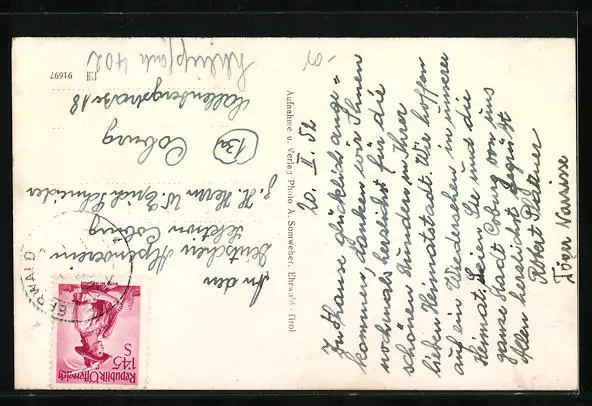 20. II. 52
Zu Hause glücklich ange=
kommen, danken wir Ihnen
nochmals herzlichst für die
schönen Stunden in Ihrer
lieben Heimatstadt. Wir hoffen
auf ein Wiedersehen in unserer
Heimat. Seien Sie und die
ganze Stadt Coburg von uns
Allen herzlichst gegrüßt
Robert Plattner
Aufnahme u. Verlag Photo A. Somweber, Ehrwald-Tirol
An den
Deutschen Alpenverein
Sektion Coburg
z. H. Herrn W. Erich Schneider
(13a) Coburg
Callenbergstraße 18
402
91697
Republik Österreich
1·45
S